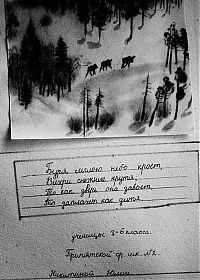 Буря мглою небо кроет,
Вихри снежные крутя,
То как зверь она завоет,
То заплачет как дитя.
ученицы 3-б класса.
Припятской ср. шк. №2.
Никитиной Юлии